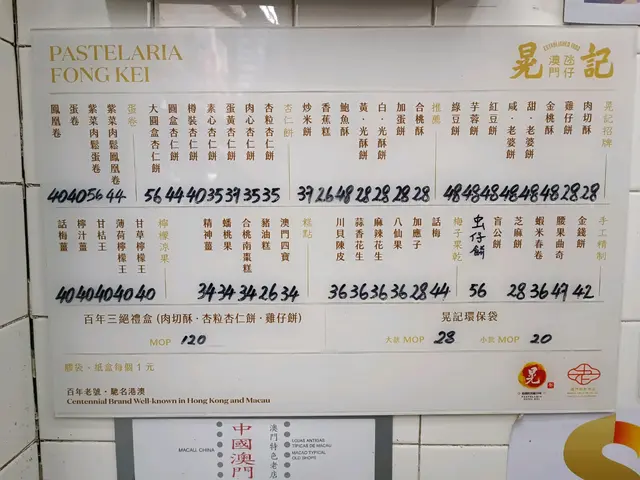 PASTELARIA
FONG KEI
晃記
ESTABLISHED 1906
澳門
氹仔
晃記招牌
肉切酥 28
雞仔餅 28
金桃酥 48
甜·老婆餅 48
咸·老婆餅 48
紅豆餅 48
芋蓉餅 48
綠豆餅 48
推薦
合桃酥 28
加蛋酥 28
白·光酥餅 28
黃·光酥餅 28
鮑魚酥 48
香蕉糕 26
炒米餅 39
杏仁餅
杏粒杏仁餅 35
肉心杏仁餅 35
蛋黃杏仁餅 39
素心杏仁餅 35
樽裝杏仁餅 40
圓盒杏仁餅 44
大圓盒杏仁餅 56
蛋卷
紫菜肉鬆鳳凰卷 44
紫菜肉鬆蛋卷 56
蛋卷 40
鳳凰卷 40
手工精制
金錢酥 42
腰果曲奇 47
蝦米春卷 36
芝麻餅 28
盲公餅
虫仔餅 56
梅子果乾
話梅 44
加應子 28
八仙果 36
麻辣花生 36
蒜香花生 36
川貝陳皮 36
糕點
澳門四寶 34
豬油糕 26
合桃南棗糕 34
蟠桃果 34
精神薑 34
檸檬涼果
甘草檸檬王 40
薄荷檸檬王 40
甘桔王 40
檸汁薑 40
話梅薑 40
百年三絕禮盒 (肉切酥·杏粒杏仁餅·雞仔餅)
MOP 120
晃記環保袋
大袋 MOP 28 小袋 MOP 20
膠袋、紙盒每個1元
百年老號·馳名港澳
Centennial Brand Well-known in Hong Kong and Macau
晃
MACAU CHINA
中國澳門
澳門特色老店
LOJAS ANTIGAS
TÍPICAS DE MACAU
MACAO TYPICAL
OLD SHOPS